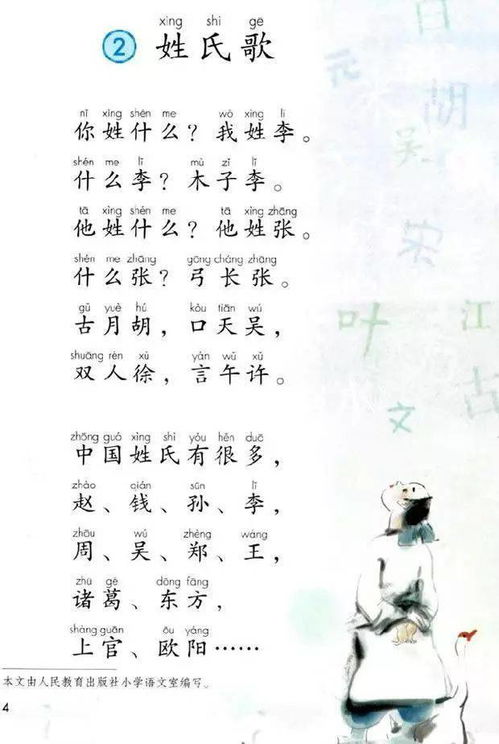 xìng shì gē
2 姓氏歌
nǐ xìng shén me wǒ xìng lǐ
你姓什么？我姓李。
shén me lǐ mù zǐ lǐ
什么李？木子李。
tā xìng shén me tā xìng zhāng
他姓什么？他姓张。
shén me zhāng gōng cháng zhāng
什么张？弓长张。
gǔ yuè hú kǒu tiān wú
古月胡，口天吴，
shuāng rén xú yán wǔ xǔ
双人徐，言午许。
zhōng guó xìng shì yǒu hěn duō
中国姓氏有很多，
zhào qián sūn lǐ
赵、钱、孙、李，
zhōu wú zhèng wáng
周、吴、郑、王，
zhū gě dōng fāng
诸葛、东方，
shàng guān ōu yáng
上官、欧阳……
本文由人民教育出版社小学语文室编写。
4
元
胡
吴
叶
江
古
文